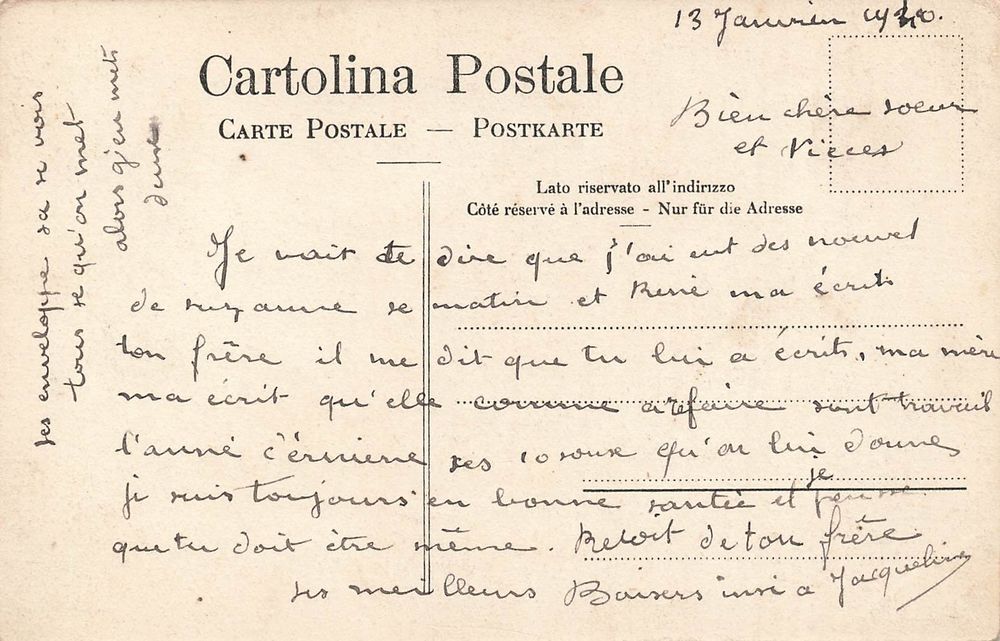 13 Janvier 1920.
Cartolina Postale
CARTE POSTALE — POSTKARTE
Bien chère soeur
et Nieces
Lato riservato all'indirizzo
Côté réservé à l'adresse - Nur für die Adresse
Je vait te dire que j'ai eut des nouvel
de suzanne se matin et René ma écrit
ton frère il me dit que tu lui a écrits, ma mère
ma écrit qu'elle comme a refaire sont travail
l'anné c'erniere ses 10 souse qu'on lui donne
ji suis toujours en bonne santée et je pensse
que tu doit être même. Resoit de ton frère
ses meilleurs Baisers insi a Jacqueline
ses enveloppe sa se vois
tous se qu'on met
alors j'en mets